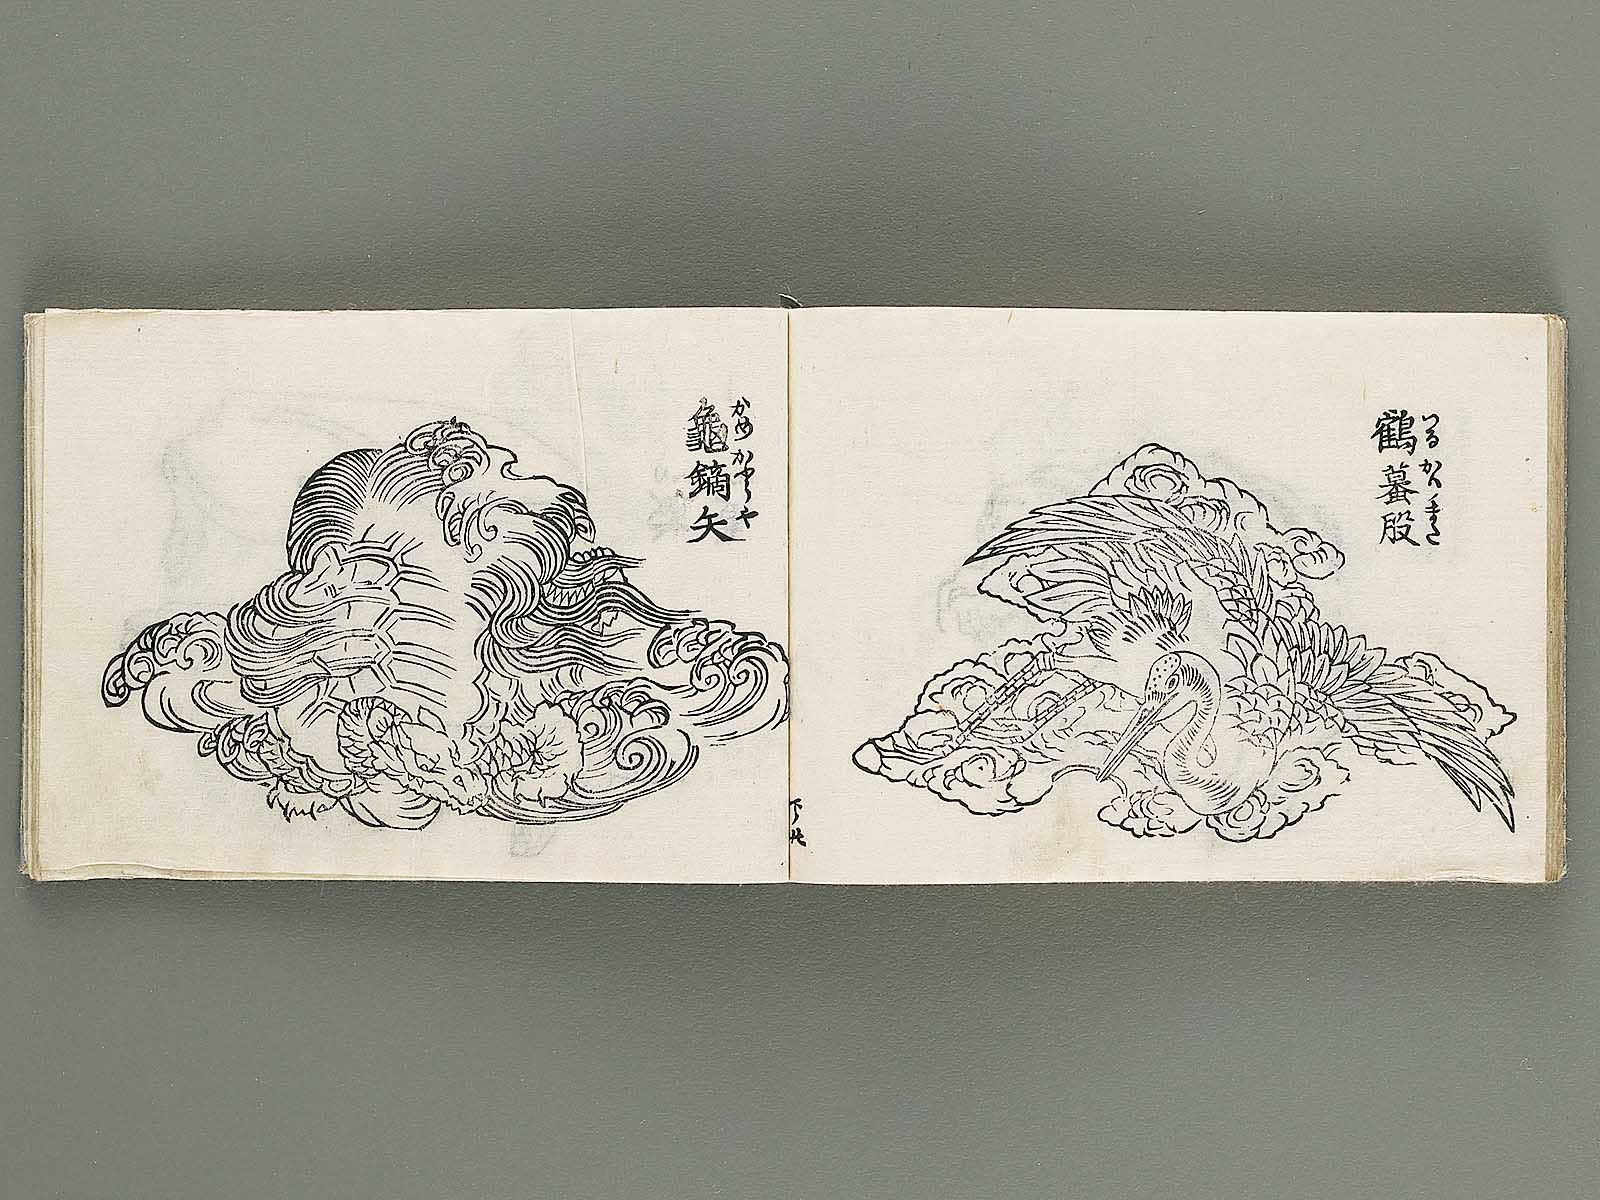 鶴蟇股
つるかへるまた
亀鏑矢
かめかぶらや
下ノ廿